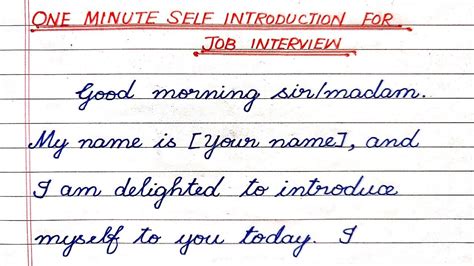 ONE MINUTE SELF INTRODUCTION FOR
JOB INTERVIEW
Good morning sir/madam.
My name is [Your name], and
I am delighted to introduce
myself to you today. I